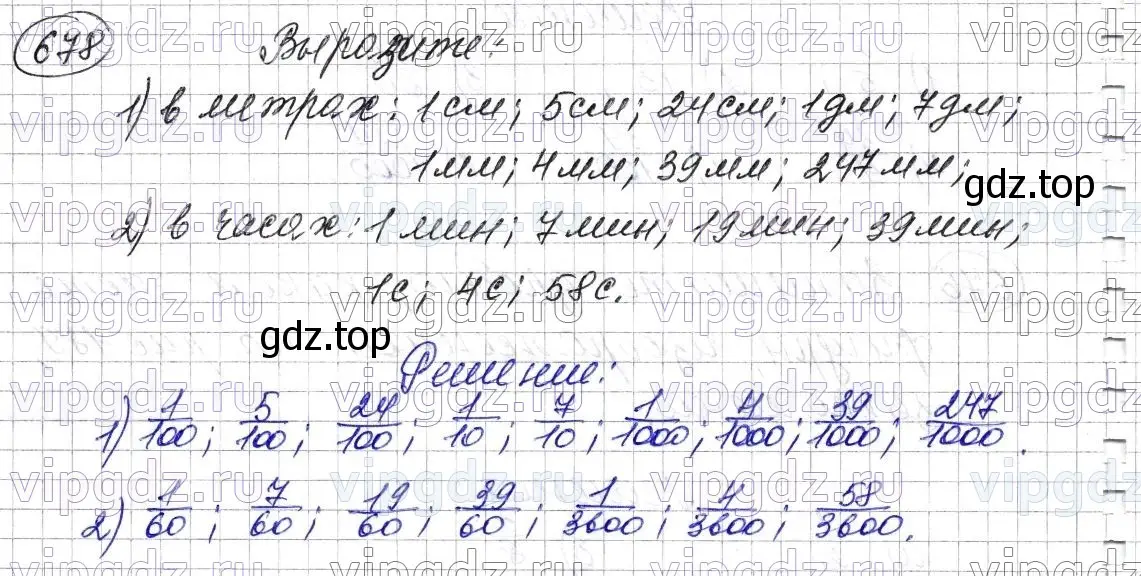 678 Выразите:
1) в метрах: 1 см; 5 см; 24 см; 1 дм; 7 дм;
1 мм; 4 мм; 39 мм; 247 мм;
gdz.top
2) в часах: 1 мин; 7 мин; 19 мин; 39 мин;
1 с; 4 с; 58 с.
gdz.top
Решение:
1) 1/100; 5/100; 24/100; 1/10; 7/10; 1/1000; 4/1000; 39/1000; 247/1000.
2) 1/60; 7/60; 19/60; 39/60; 1/3600; 4/3600; 58/3600.
vipgdz.ru